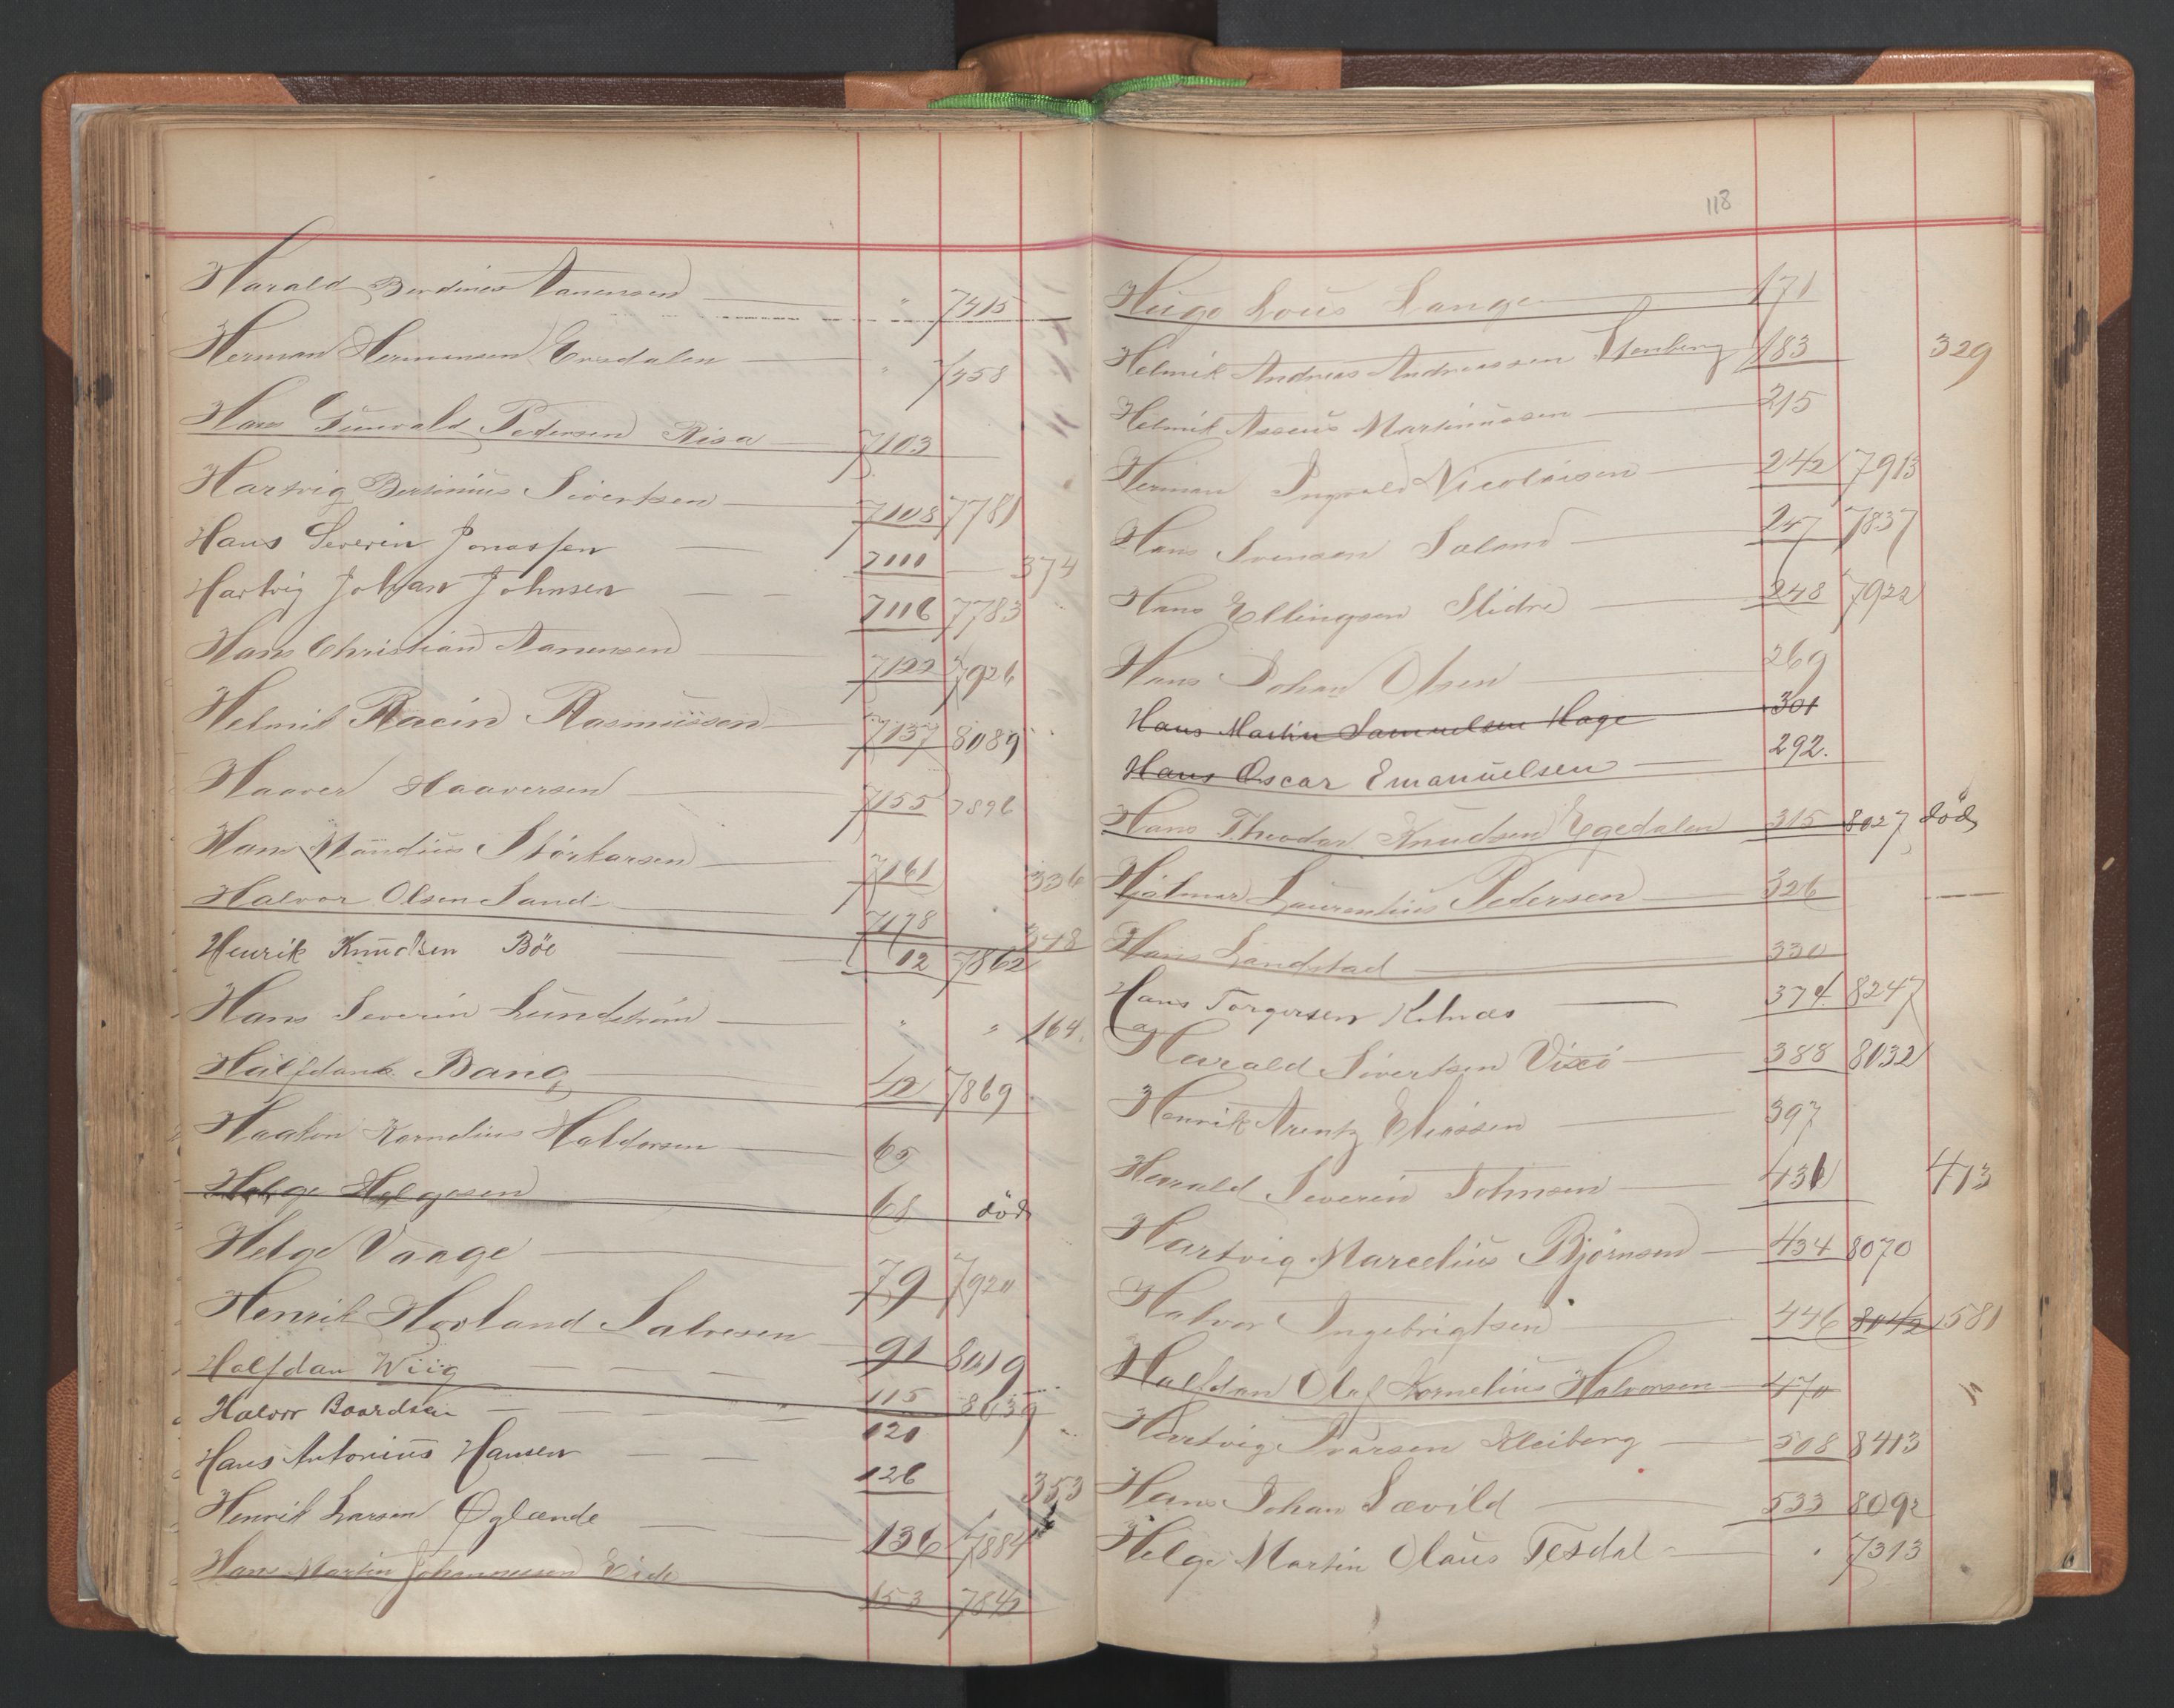 Harald Berdines Aanensen — " 7415
Herman Hermansen Ersdalen — " 7458
Hans Gunvald Pedersen Risa — 7103
Hartvig Bertinius Sivertsen — 7108 7781
Hans Severin Jonassen — 7111 — 374
Hartvig Johan Johnsen — — 7116 7783
Hans Christian Aanensen — 7122 7926
Helmik Racin Rasmussen — 7137 8089
Haaver Haaversen — 7155 7896
Hans Mandius Storkarsen — 7161 336
Halvor Olsen Sand — 7178 348
Henrik Knudsen Böe — 12 7862
Hans Severin Lundström — " " 164.
Halfdank Bang — 42 7869
Haakon Kornelius Haldorsen — 65
Helge Helgesen — 68 död
Helge Vaage — 79 7920
Henrik Hovland Salvesen — 91 8019
Halfdan Wiig — — — 115 8039
Halvor Baardsen — — " 121
Hans Antonius Hansen — — 126 353
Henrik Larsen Øglænde — — 136 7884
Hans Martin Johannessen Eide — 153 7842
118
Hugo Lous Lange — 171
Helmik Andreas Andreassen Stenberg 183 329
Helmik Asseus Martinussen — 215
Herman Ingvald Nicolaisen — 242 7913
Hans Svensen Saland — 247 7837
Hans Ellingsen Slidre — 248 7922
Hans Johan Olsen — 269
Hans Martin Samuelsen Hage 301
Hans Oscar Emanuelsen — 292.
Hans Theodor Knudsen Egedalen 315 8027 död
Hjalmar Laurentius Pedersen — 326
Hans Landstad — 330
Hans Torgersen Kolnæs — 374 8247
Harald Sivertsen — 388 8032
Henrik Arentz Eliassen — 397
Harald Severin Johnsen — 431 413
Hartvig Marcelius Björnsen — 434 8070
Halvor Ingebrigtsen — 446 8042 581
Halfdan Olaf Kornelius Halvorsen — 470 "
Hartvig Ivarsen Kleiberg — 508 8413
Hans Johan Sævild — 533 8092
Helge Martin Olaus Tesdal — . 7313